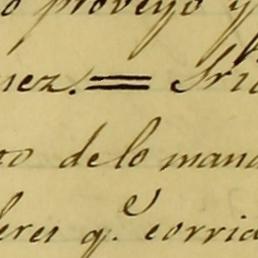 o proveyo y
nez.= Sri
to de lo man
eres q.e corri